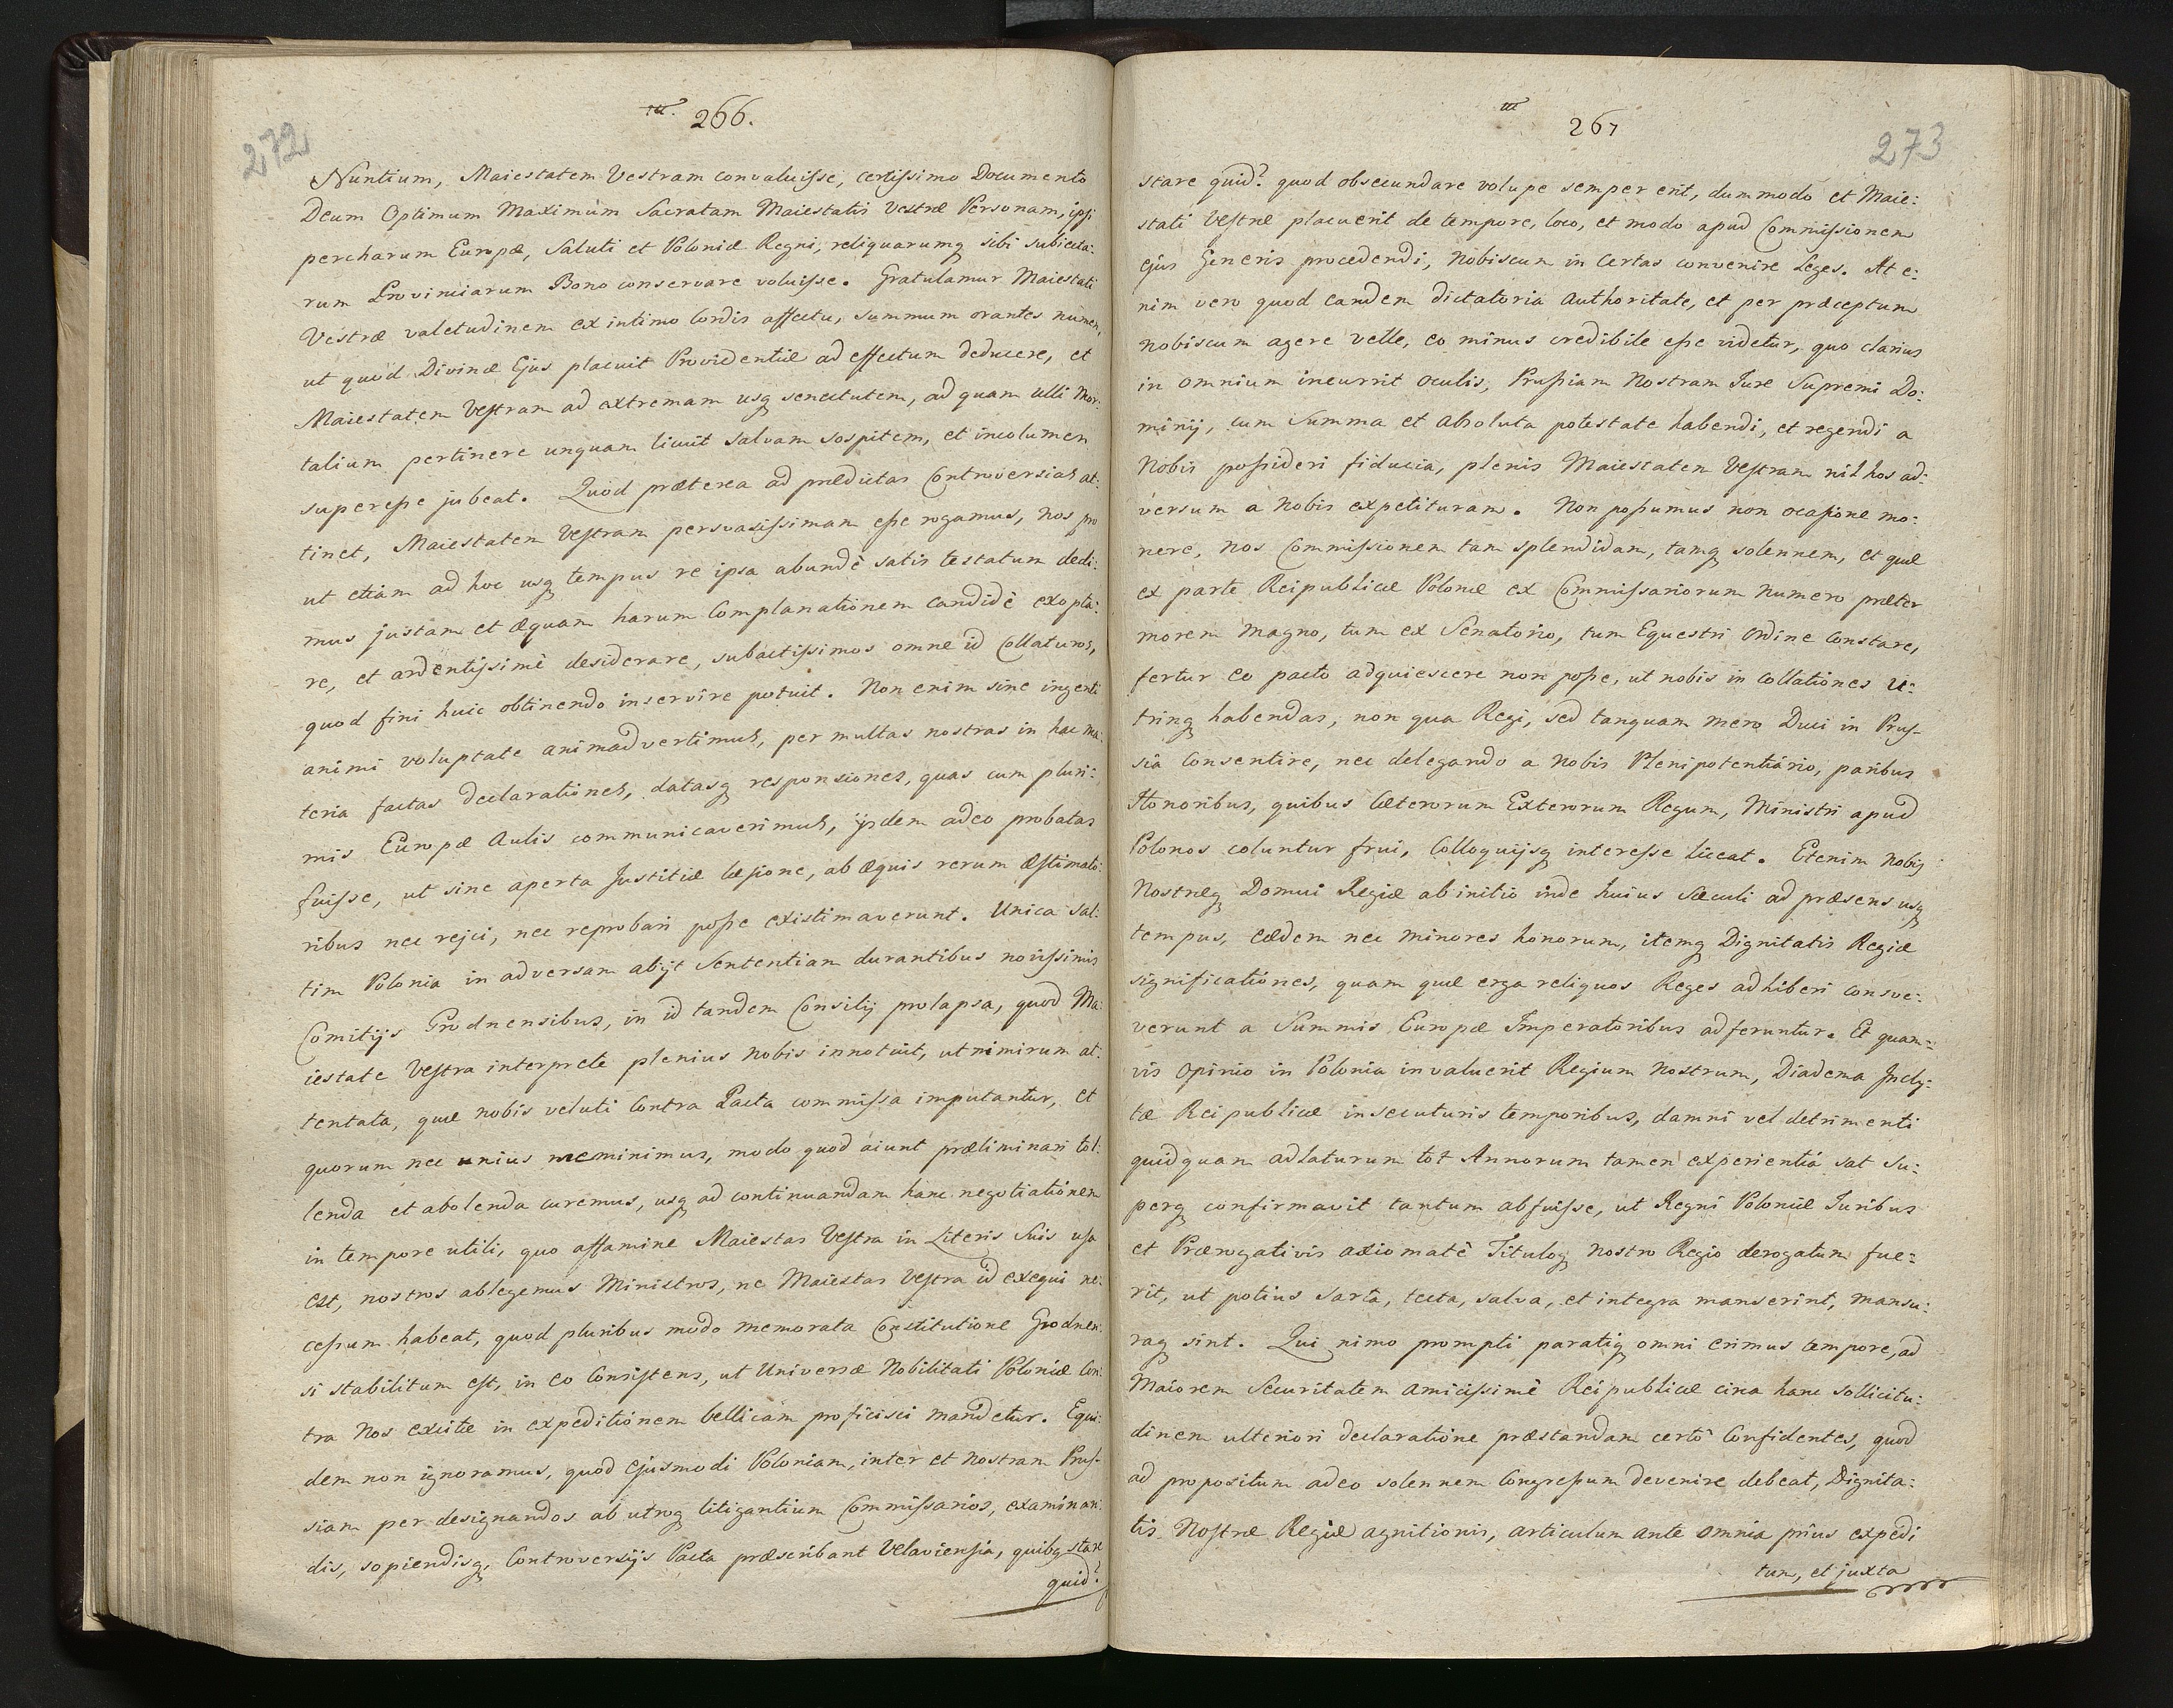 266.
272
Nuntium, Maiestatem Vestram convaluisse, certissimo Documento
Deum Optimum Maximum Sacratam Maiestatis Vestræ Personam, ipsi
percharum Europæ, Saluti et Poloniæ Regni, reliquarumq sibi subiecta:
rum Provinciarum Bono conservare voluisse. Gratulamur Maiestati
Vestræ valetudinem ex intimo Cordis affectu, summum orantes numen,
ut quod Divinæ Ejus placuit Providentiæ ad effectum deducere, et
Maiestatem Vestram ad extremam usq senectutem, ad quam ulli Mor:
talium pertinere unquam licuit salvam sospitem, et incolumen
superesse jubeat. Quod præterea ad prædictas Controversias at:
tinet, Maiestatem Vestram persvasissimam esse rogamus, nos pro
ut etiam ad hoc usq tempus re ipsa abundè satis testatum dedi:
mus justam et æquam harum Complanationem candidè exopta:
re, et ardentissimè desiderare, subactissimos omne id Collaturos,
quod fini huic obtinendo inservire potuit. Non enim sine ingenti
animi voluptate animadvertimus, per multas nostras in hac ma:
teria factas declarationes, datasq responsiones, quas cum pluri:
mis Europæ Aulis communicaverimus, ijsdem adeo probatas
fuisse, ut sine aperta Justitiæ læsione, ab æquis rerum æstimato:
ribus nec rejci, nec reprobari posse existimaverunt. Unica sal:
tim Polonia in adversam abijt Sententiam durantibus novissimis
Comitijs Grodnensibus, in id tandem Consilij prolapsa, quod Ma:
iestate Vestra interprete plenius nobis innotuit, ut nimirum at:
tentata, quæ nobis veluti Contra Pacta commissa imputantur, et
quorum nec unius meminimus, modo quod aiunt præliminari tol:
lenda et abolenda curemus, usq ad continuandam hanc negotiationem
in tempore utili, quo affamine Maiestas Vestra in Literis Suis usa
est, nostros ablegemus Ministros, ne Maiestas Vestra id exequi ne:
cessum habeat, quod pluribus modo memorata Constitutione Grodnen:
si stabilitum est, in eo Consistens, ut Universæ Nobilitati Poloniæ Con:
tra Nos excitæ in expeditionem bellicam proficisci mandetur. Equi:
dem non ignoramus, quod ejusmodi Poloniam, inter et nostram Prus-
siam per designandos ab utroq litigantium Commissarios, examinan:
dis, sopiendisq, Controversijs Pacta præscribant Velaviensia, quibq stare
quid?
267
273
stare quid? quod obsecundare volupe semper erit, dummodo et Maie:
stati Vestræ placuerit de tempore, loco, et modo apud Commissionem
ejus Generis procedendi, Nobiscum in Certas convenire Leges. At e:
nim vero quod eandem dictatoria Authoritate, et per præceptum
nobiscum agere velle, eo minus credibile esse videtur, quo clarius
in omnium incurrit oculis, Prussiam Nostram Jure Supremi Do:
minij, cum Summa et absoluta potestate habendi, et regendi a
Nobis possideri fiducia, plenis Maiestatem Vestram nil hos ad:
versum a Nobis expetituram. Non possumus non ocasione mo:
nere, nos Commissionem tam splendidam, tamq solennem, et quæ
ex parte Reipublicæ Polonæ ex Commissariorum Numero præter
morem Magno, tum ex Senatorio, tum Equestri Ordine Constare,
fertur eo pacto adquiescere non posse, ut nobis in Collationes U:
trinq habendas, non qua Regi, sed tanquam mero Duci in Prus-
sia Consentire, nec delegando a Nobis Plenipotentiario, paribus
Honoribus, quibus Cæterorum Exterorum Regum, Ministri apud
Polonos coluntur frui, Colloquijsq interesse liceat. Etenim Nobis
Nostræq Domui Regiæ ab initio inde huius Sæculi ad præsens usq
tempus, eædem nec minores honorum, itemq Dignitatis Regiæ
significationes, quam quæ erga reliquos Reges adhiberi consve:
verunt a Summis Europæ Imperatoribus adferuntur. Et quam:
vis Opinio in Polonia invaluerit Regium Nostrum, Diadema Incly:
tæ Reipublicæ insecuturis temporibus, damni vel detrimenti
quidquam adlaturum tot Annorum tamen experientiâ sat Su:
perq confirmavit tantum abfuisse, ut Regni Poloniæ Juribus
et Prærogativis axiomatê Tituloq Nostro Regio derogatum fue:
rit, ut potius Sarta, tecta, salva, et integra manserint, mansu:
raq sint. Qui nimo prompti paratiq omni erimus tempore, ad
Maiorem Securitatem amicissimè Reipublicæ circa hanc sollicitu:
dinem ulteriori declaratione præstandam certò Confidentes, quod
ad propositum adeo solennem Congressum devenire debeat, Dignita:
tis Nostræ Regiæ agnitionis, articulum ante omnia prius expedi
tum, et juxta